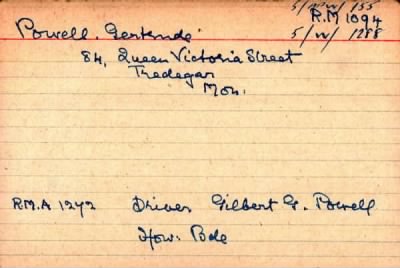 5/MW/155
R.M 1094
Powell. Gertrude
5/W/1288
84, Queen Victoria Street
Tredegar
Mon.
R.M.A 1272 Driver Gilbert G. Powell
How: Bde